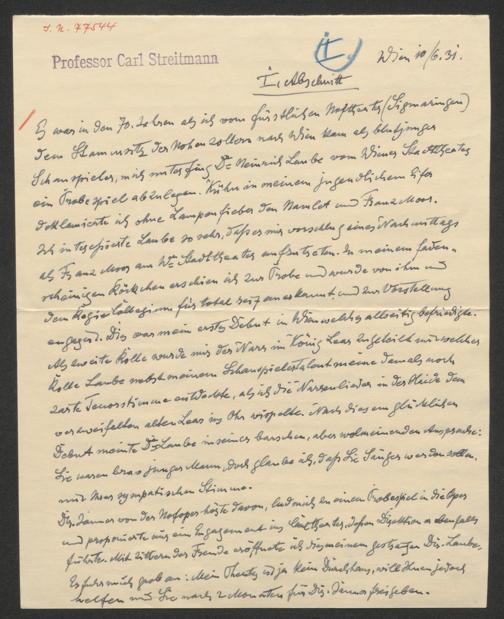 I. N. 77544
Professor Carl Streitmann
II
Wien 10/6.31.
I. Abschnitt
Es war in den 70. Jahren als ich vom fürstlichen Hoftheater (Sigmaringen)
dem Stammsitz der Hohenzollern nach Wien kam als blutjunger
Schauspieler, mich unterfing Dr. Heinrich Laube vom Wiener Stadttheater
ein Probespiel abzulegen. Kühn in meinem jugendlichem Eifer
deklamierte ich ohne Lampenfieber den Hamlet und Franz Moor.
Ich interessierte Laube so sehr, daß er mir vorschlug eines Nachmittags
als Franz Moor am Wr. Stadttheater aufzutreten. In meinem faden-
scheinigen Röckchen erschien ich zur Probe und wurde von ihm und
dem Regie Collegium für total reif anerkannt und zur Vorstellung
engagiert. Dies war mein erstes Debut in Wien welches allseitig befriedigte.
Als zweite Rolle wurde mir der Narr in König Lear zugeteilt mit welcher
Rolle Laube nebst meinem Schauspielertalent meine damals noch
zarte Tenorstimme entdeckte, als ich die Narrenlieder in der Heide dem
verzweifelten alten Lear ins Ohr wispelte. Nach diesem glücklichen
Debut meinte Dr. Laube in seiner barschen, aber wolmeinenden Aussprache:
Sie waren brav junger Mann, doch glaube ich, daß Sie Sänger werden sollen,
mit Ihrer sympatischen Stimme.
Dir. Jauner von der Hofoper hörte davon, lud mich zu einem Probespiel in die Oper
und proponierte mir ein Engagement ins Carltheater, dessen Direktion er ebenfalls
führte. Mit Zittern der Freude eröffnete ich dies meinem gestrengen Dir. Laube,
Er fuhr mich grob an: Mein Theater ist ja kein Durchhaus, will Ihnen jedoch
helfen und Sie nach 2 Monaten für Dir. Jauner freigeben.